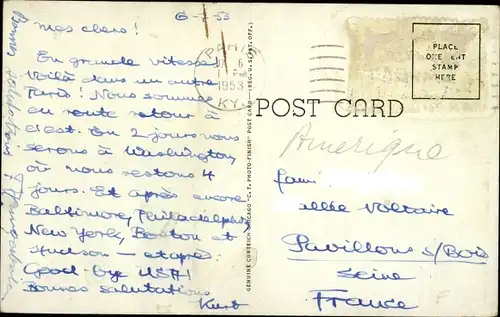 6-7-53
Mes chers!
En grande vitesse!
Voilà dans un autre
Paris! Nous sommes
en route retour à
l'est. En 2 jours nous
serons à Washington,
où nous restons 4
jours. Et après encore
Baltimore, Philadelphie
New York, Boston et
Hudson - etape.
Good-bye USA!
Bonnes salutations
Kurt
PARIS
6
1953
KY.
PLACE
ONE CENT
STAMP
HERE
POST CARD
GENUINE CURTEICH-CHICAGO "C. T. PHOTO-FINISH" POST CARD (REG. U. S. PAT. OFF.)
Amerique
Fami
allée Voltaire
Pavillons s/Bois
Seine
France
Bonnes salutations